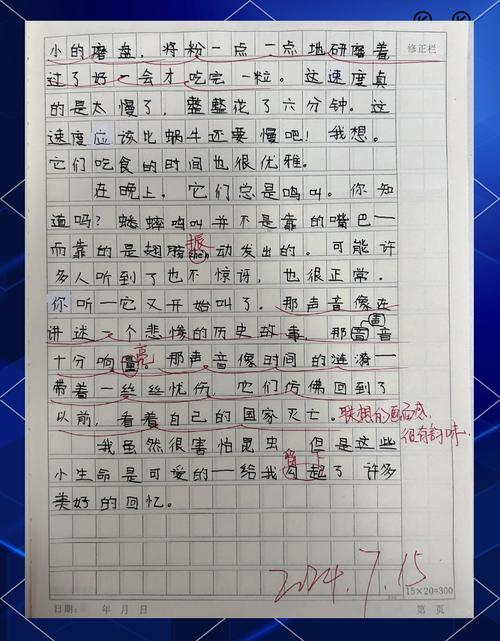 修正栏
小的磨盘，将粉一点一点地研磨着
过了好一会才吃完一粒。这速度真
的是太慢了，整整花了六分钟。这
速度应该比蜗牛还要慢吧！我想。
它们吃食的时间也很优雅。
在晚上，它们总是鸣叫。你知
道吗？蟋蟀鸣叫并不是靠的嘴巴—
而靠的是翅膀振(zhen)动发出的。可能许
多人听到了也不惊讶，也很正常。
你听—它又开始叫了。那声音像在
讲述一个悲惨的历史故事。那声音
十分响亮。那声音像时间的涟漪—
带着一丝丝忧伤，它们仿佛回到了
以前，看着自己的国家灭亡。
联想的画面感，
很有韵味。
我虽然很害怕昆虫，但是这些
小生命是可爱的—给我留下了许多
美好的回忆。
2024.7.15
15×20=300
日期： 年 月 日
第 页